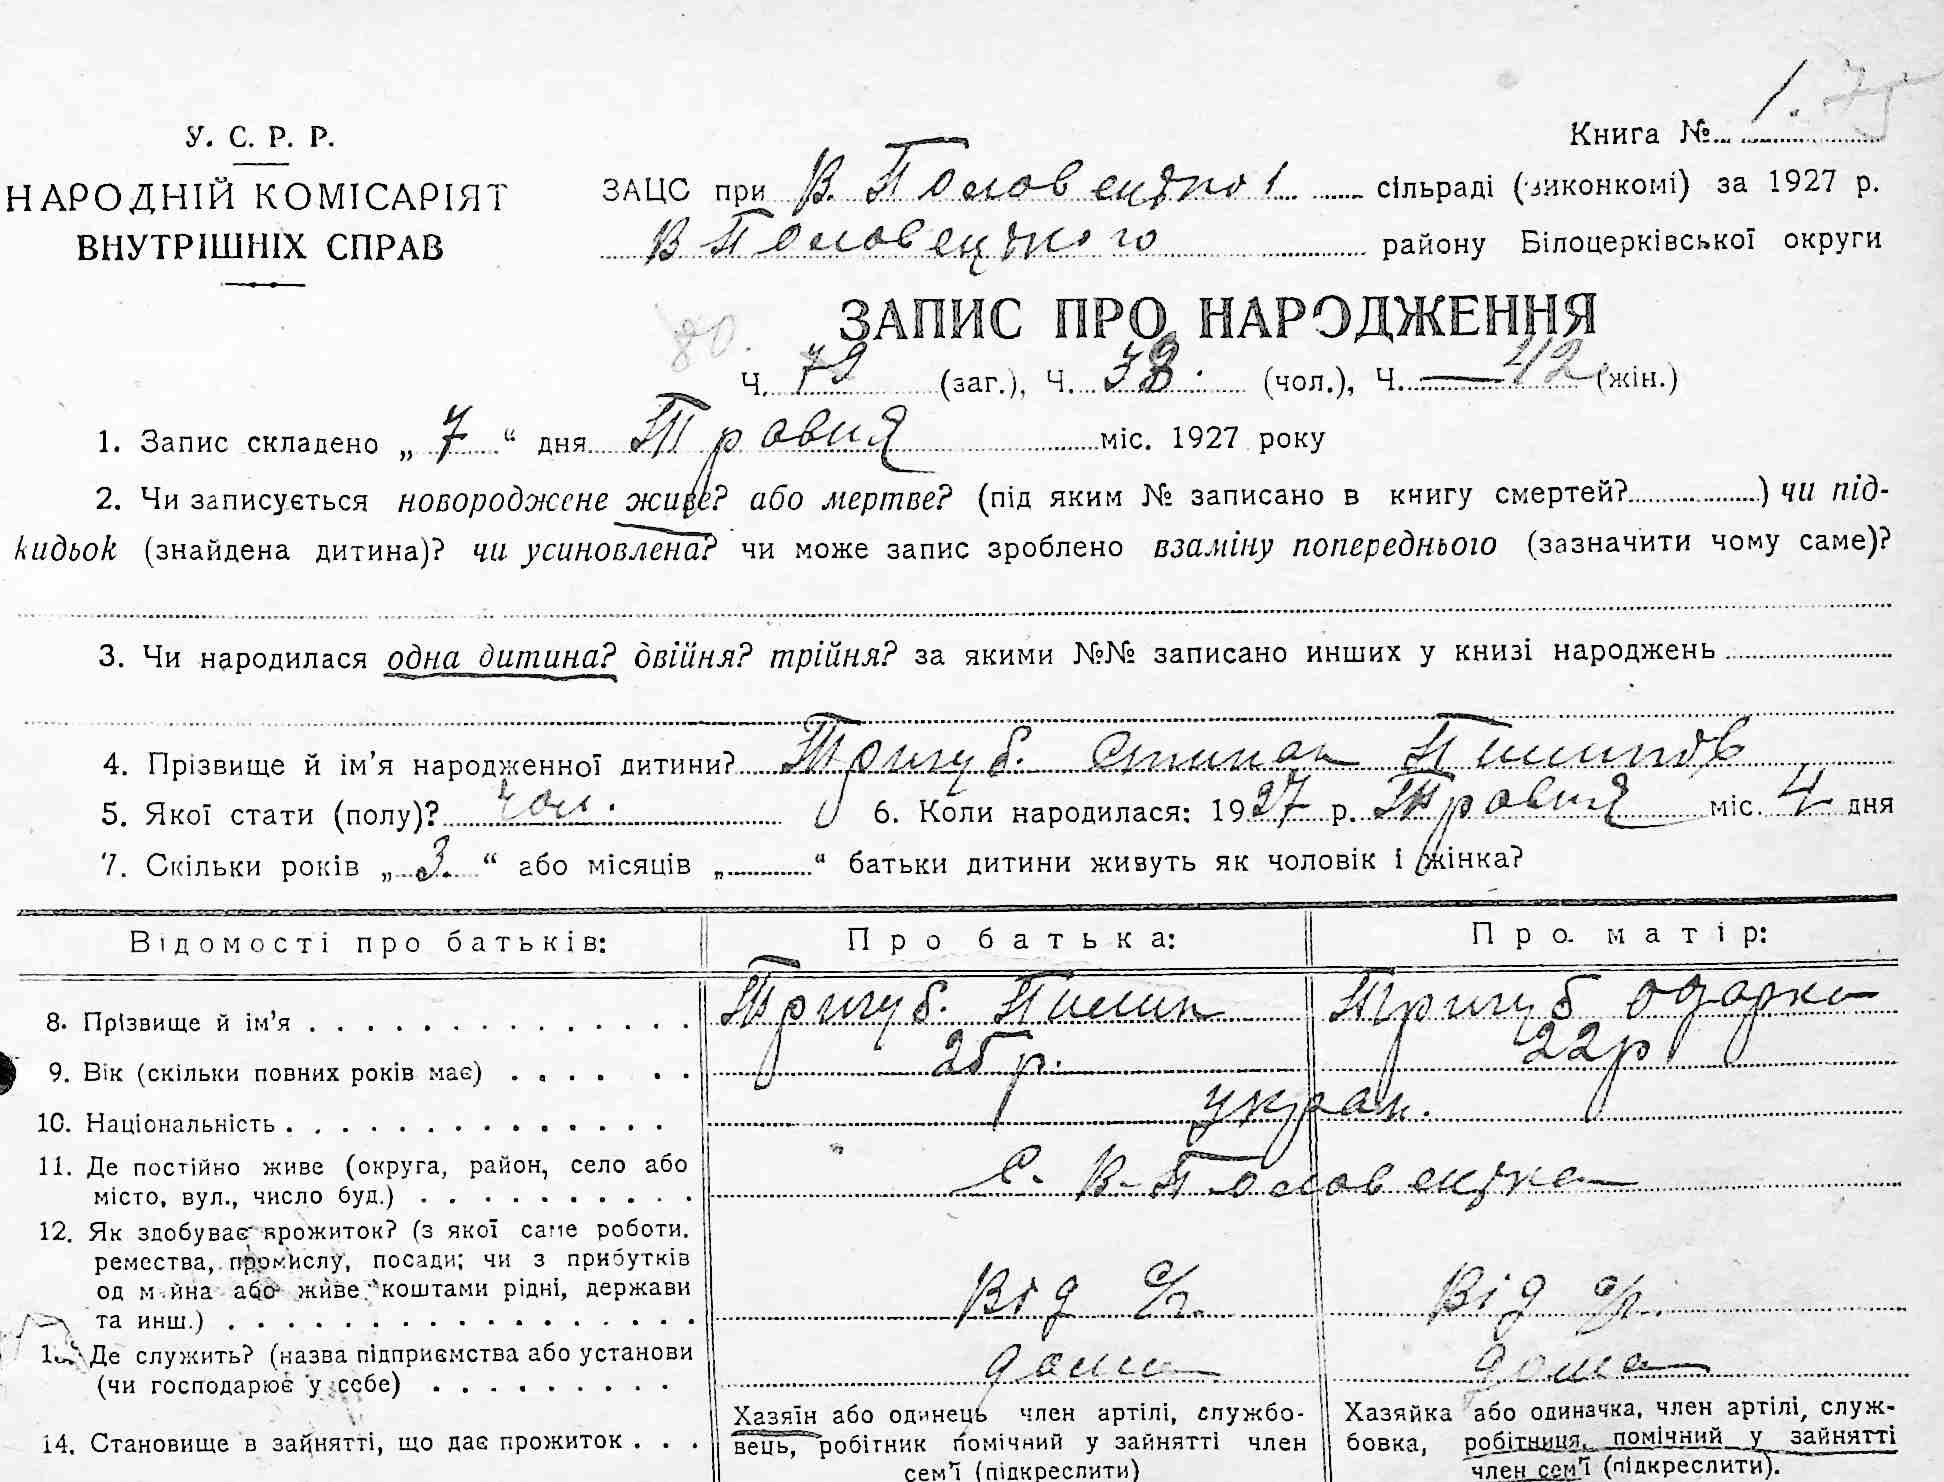 1. 75
У. С. Р. Р.
Книга №
НАРОДНІЙ КОМІСАРІЯТ
ВНУТРІШНІХ СПРАВ
ЗАЦС при В. Половецкої сільраді (виконкомі) за 1927 р.
В Половецкого району Білоцерківської округи
ЗАПИС ПРО НАРОДЖЕННЯ
80.
Ч. 79 (заг.), Ч. 38. (чол.), Ч. — 42 (жін.)
1. Запис складено „ 7 “ дня Травня міс. 1927 року
2. Чи записується новороджене живе? або мертве? (під яким № записано в книгу смертей? ) чи під-
кидьок (знайдена дитина)? чи усиновлена? чи може запис зроблено взаміну попереднього (зазначити чому саме)?
3. Чи народилася одна дитина? двійня? трійня? за якими №№ записано инших у книзі народжень
4. Прізвище й ім’я народженної дитини? Тригуб. Степан Пилипов
5. Якої стати (полу)? чол. 6. Коли народилася: 1927 р. Травня міс. 4 дня
7. Скільки років „ 3. “ або місяців „ “ батьки дитини живуть як чоловік і жінка?
Відомості про батьків: Про батька: Про матір:
8. Прізвище й ім’я Тригуб. Пилип Тригуб Одарка
9. Вік (скільки повних років має) 25 р. 22 р
10. Національність укран.
11. Де постійно живе (округа, район, село або
місто, вул., число буд.) С. В-Половецка
12. Як здобуває прожиток? (з якої саме роботи,
ремества, промислу, посади; чи з прибутків
од майна або живе коштами рідні, держави
та инш.) Від с/г. Від с/г.
13. Де служить? (назва підприємства або установи
(чи господарює у себе) дома дома
14. Становище в зайнятті, що дає прожиток
Хазяїн або одинець член артілі, службо-
вець, робітник помічний у зайнятті член
сем’ї (підкреслити)
Хазяйка або одиначка, член артілі, служ-
бовка, робітниця, помічний у зайнятті
член сем’ї (підкреслити).